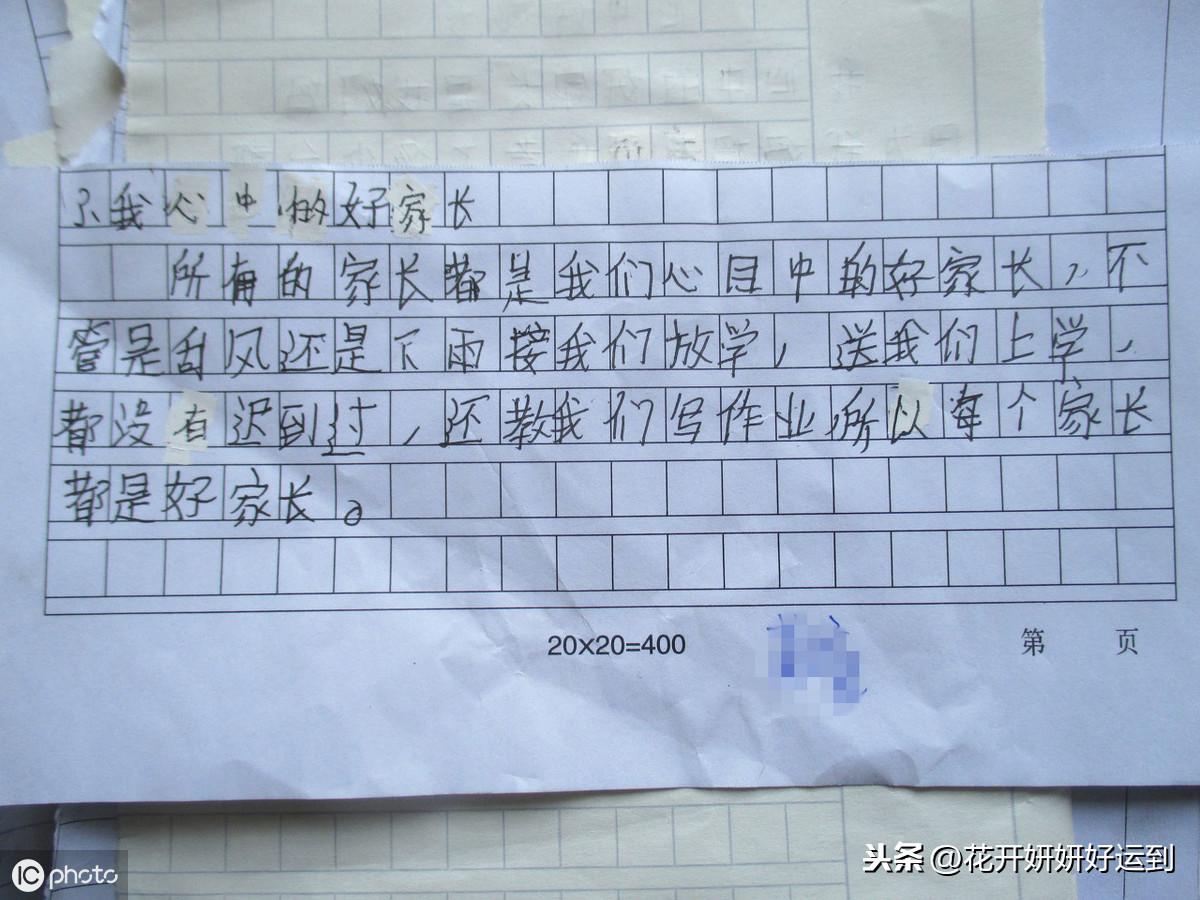 我心中做好家长
所有的家长都是我们心目中的好家长,不
管是刮风还是下雨接我们放学,送我们上学,
都没有迟到过,还教我们写作业,所以每个家长
都是好家长。
20x20=400
第 页
IC photo
头条 @花开妍妍好运到